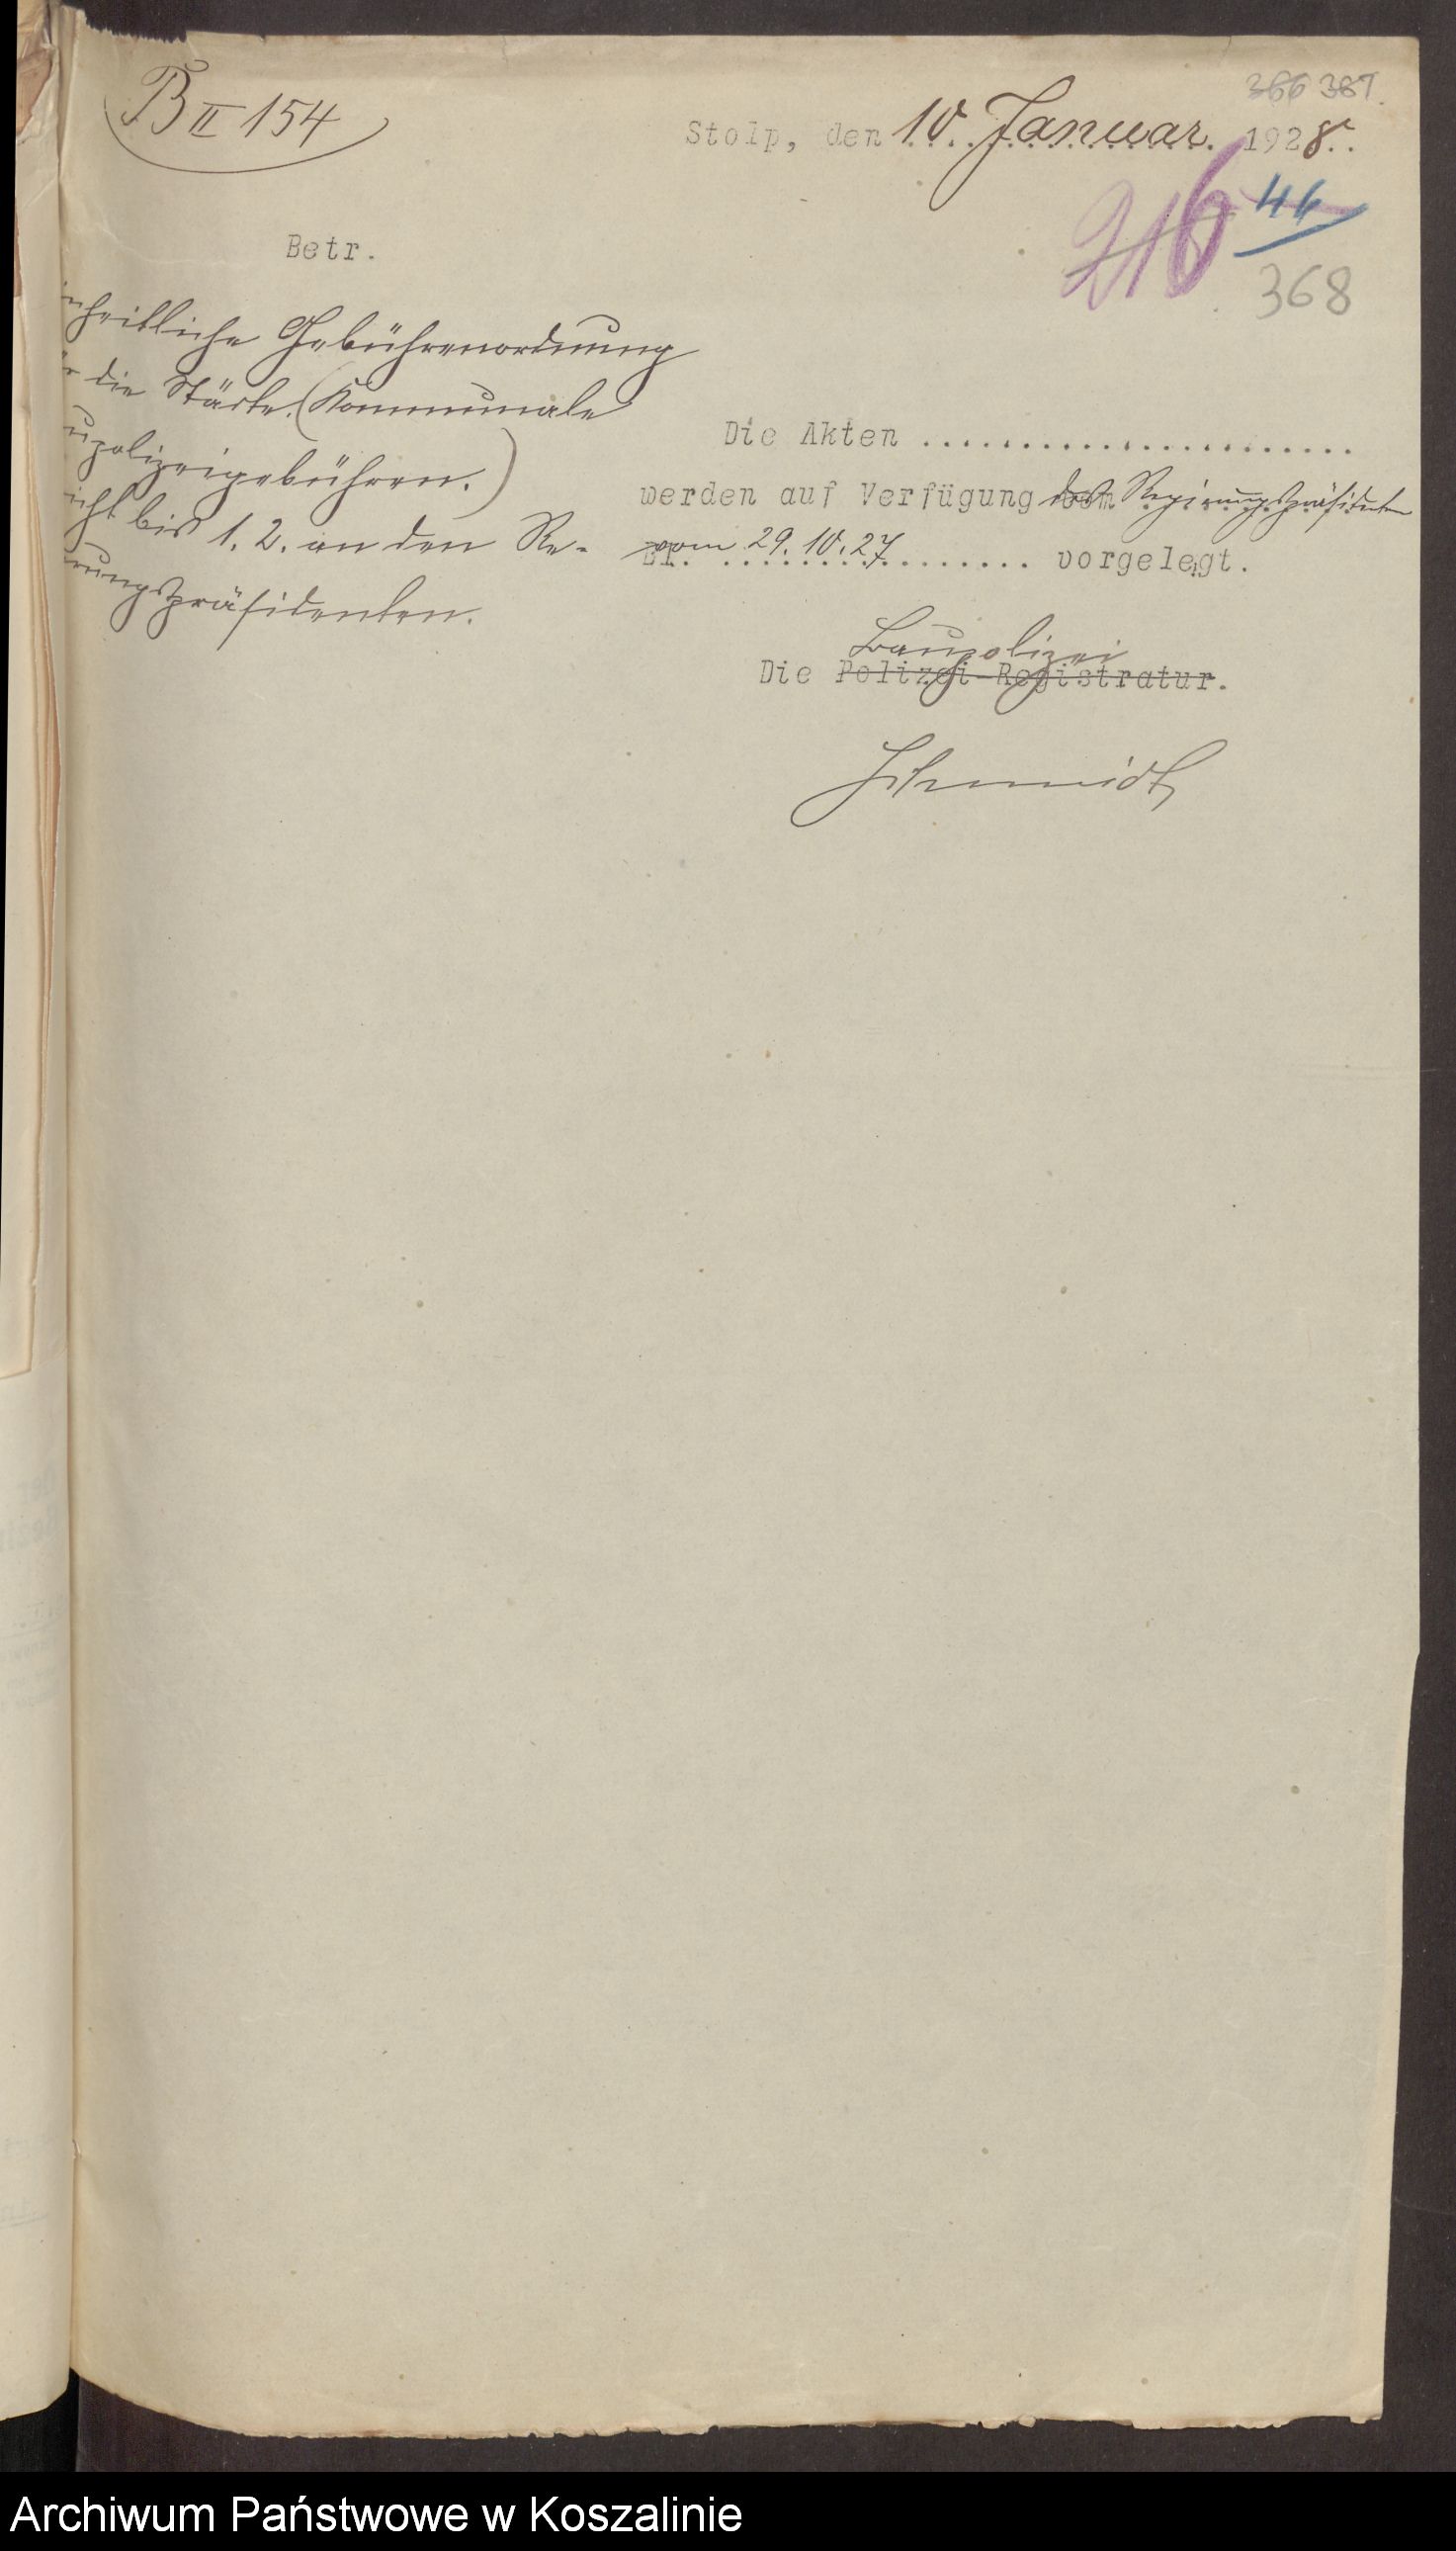 B II 154
366 367.
Stolp, den 10. Januar. 1928.
216 46
368
Betr.
nheitliche Gebührenordnung
r die Städte. (Kommunale
upolizeigebühren.)
icht bis 1. 2. an den Re-
rungspräsidenten.
Die Akten ......................
werden auf Verfügung des Regierungspräsidenten
vom 29. 10. 27 ....... vorgelegt.
Baupolizei
Die Polizei-Registratur.
Schmidt
Archiwum Państwowe w Koszalinie